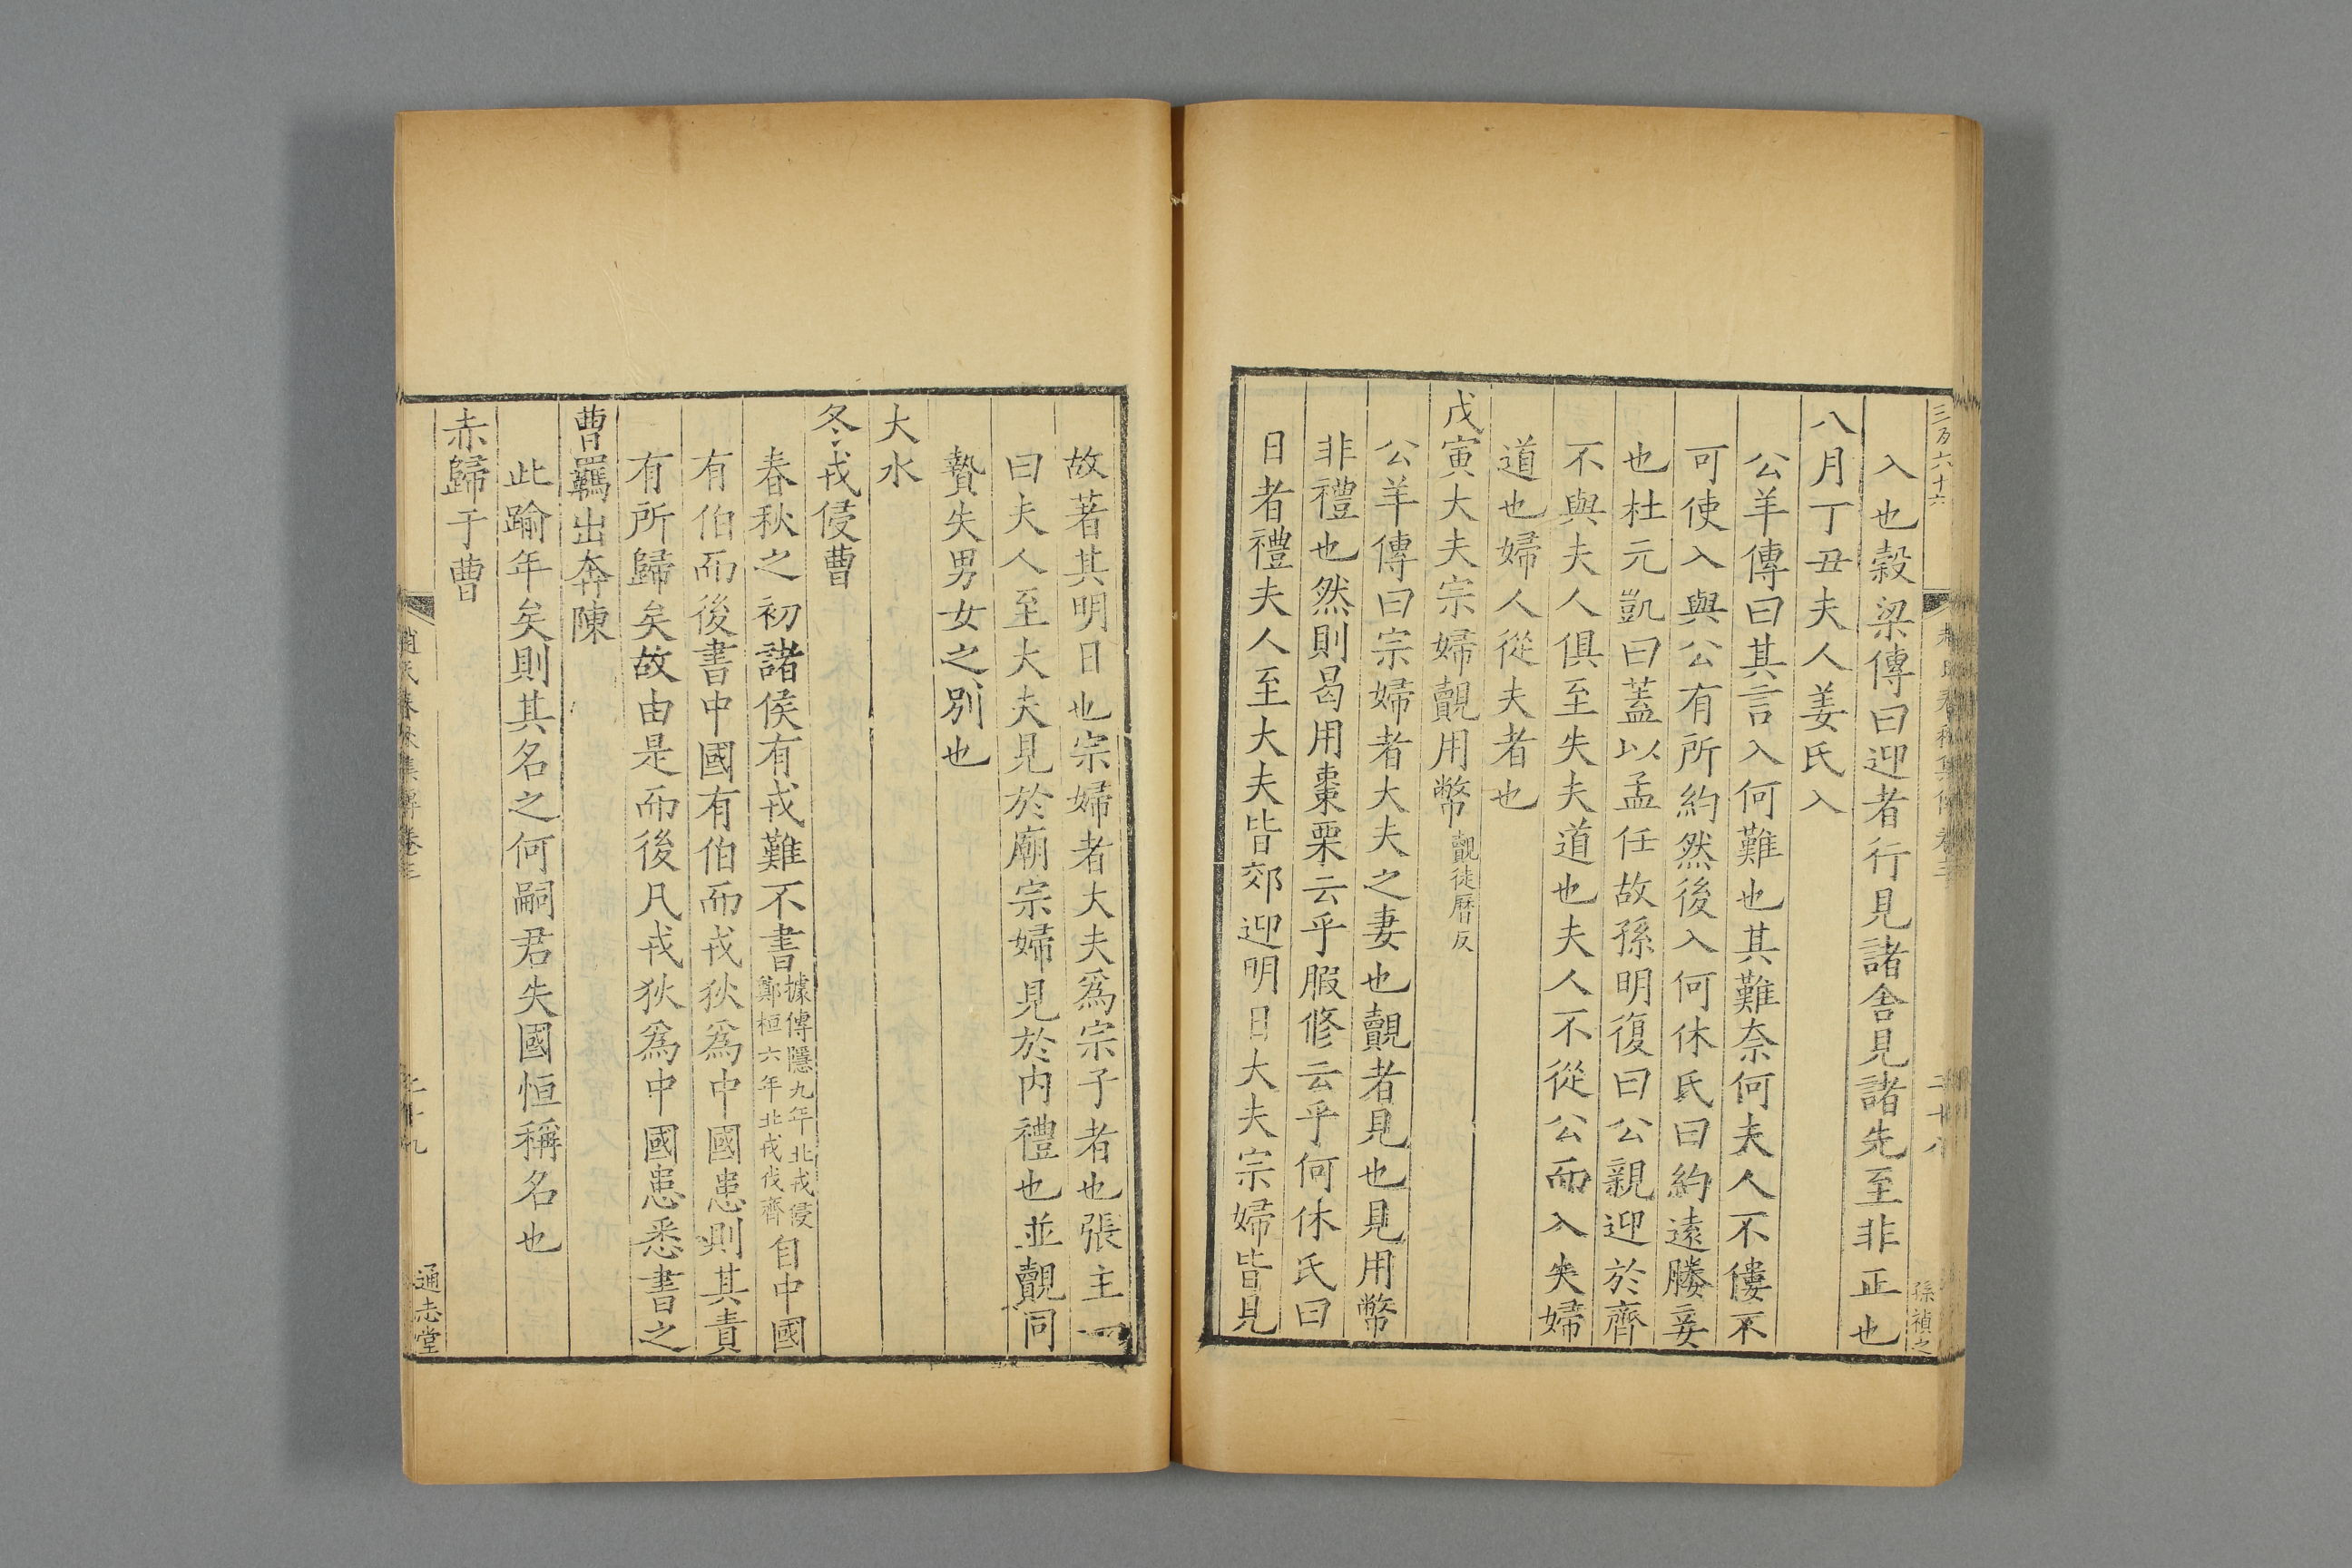 三百六十六
入也穀梁傳曰迎者行見諸舍見諸先至非正也
八月丁丑夫人姜氏入
公羊傳曰其言入何難也其難奈何夫人不僂不
可使入與公有所約然後入何休氏曰約遠媵妾
也杜元凱曰蓋以孟任故孫明復曰公親迎於齊
不與夫人俱至失夫道也夫人不從公而入失婦
道也婦人從夫者也
戊寅大夫宗婦覿用幣覿徒曆反
公羊傳曰宗婦者大夫之妻也覿者見也見用幣
非禮也然則曷用棗栗云乎腶修云乎何休氏曰
日者禮夫人至大夫皆郊迎明日大夫宗婦皆見
二十八
孫禎之
故著其明日也宗婦者大夫爲宗子者也張主一
曰夫人至大夫見於廟宗婦見於内禮也並覿同
贄失男女之別也
大水
冬戎侵曹
春秋之初諸侯有戎難不書據傳隱九年北戎侵鄭桓六年北戎伐齊自中國
有伯而後書中國有伯而戎狄爲中國患則其責
有所歸矣故由是而後凡戎狄爲中國患悉書之
曹羈出奔陳
此踰年矣則其名之何嗣君失國恒稱名也
赤歸于曹
春秋集傳卷三
二十九
通志堂